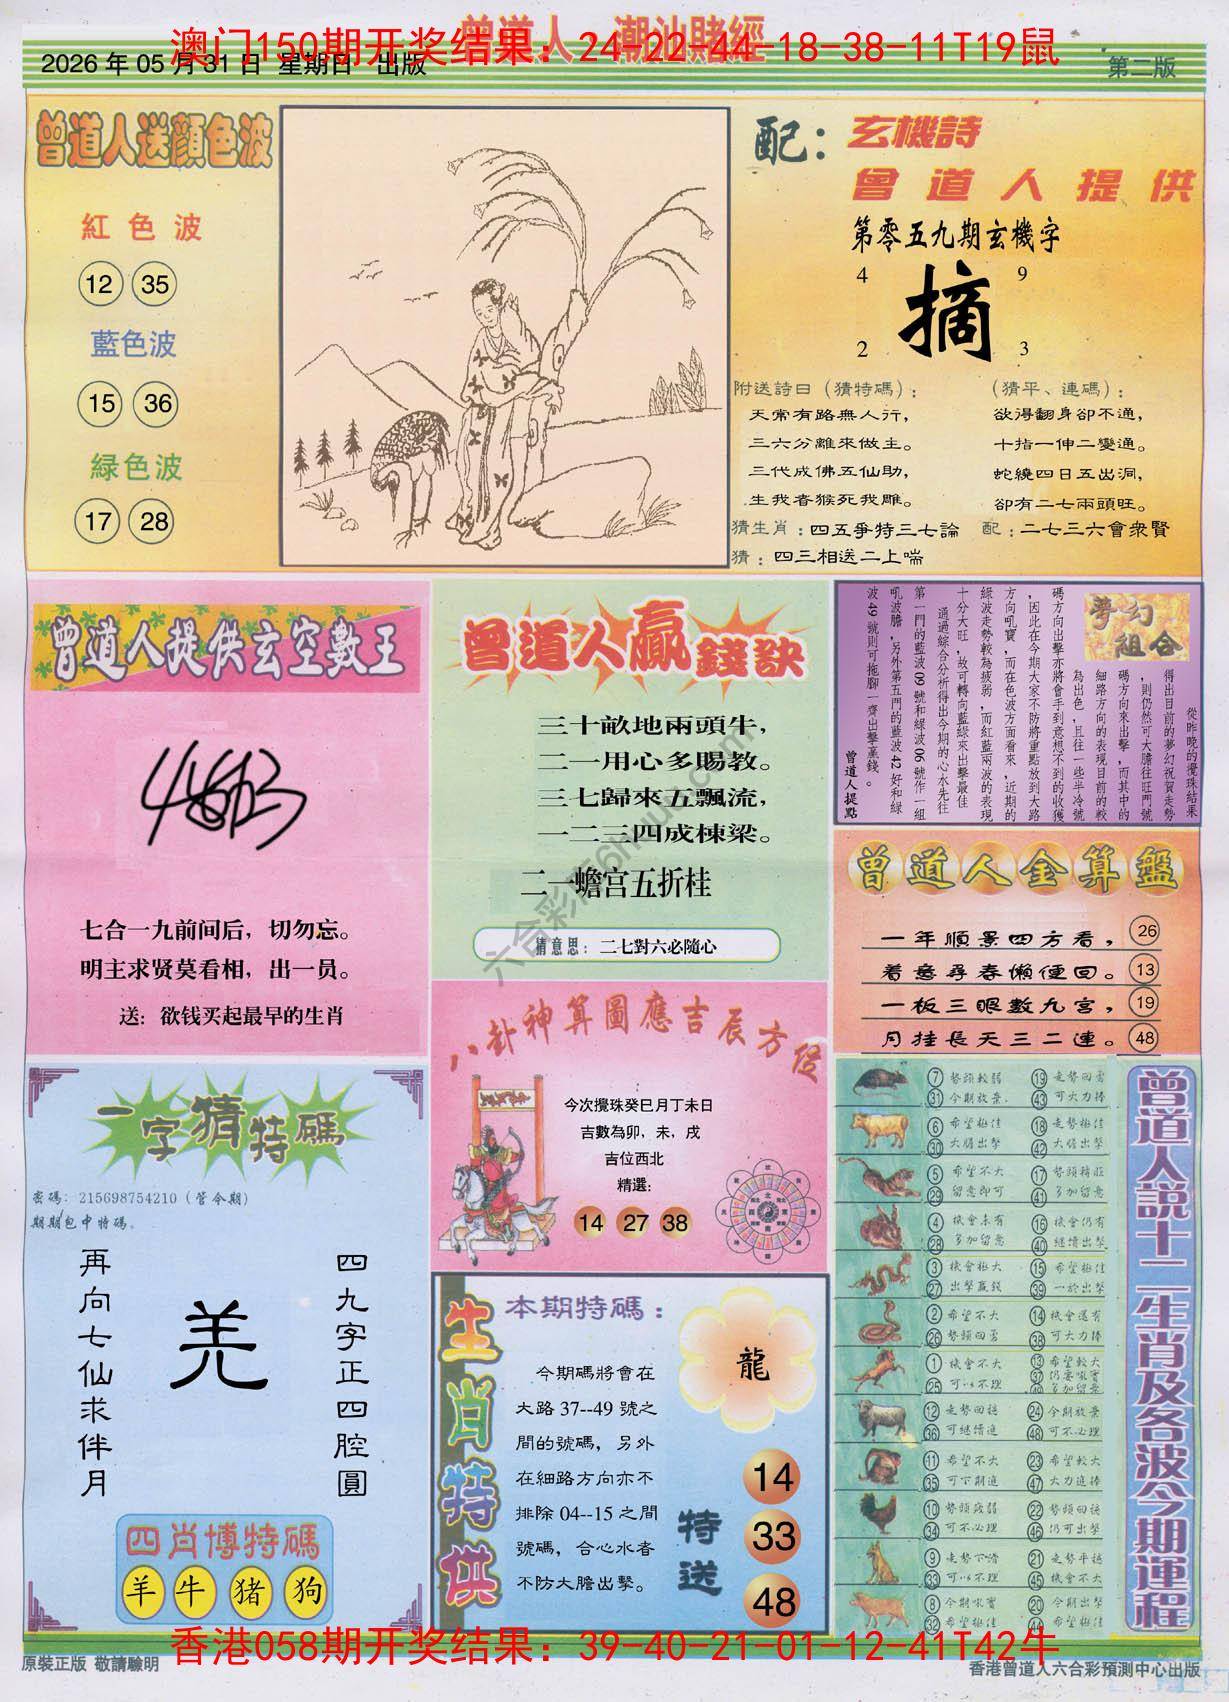 曾道人 潮汕賭經
澳门150期开奖结果: 24-22-44-18-38-11T19鼠
2026 年 05 月 31 日 星期日 出版
第二版
曾道人送顏色波
紅色波
12 35
藍色波
15 36
緑色波
17 28
配:
玄機詩
曾道人提供
第零五九期玄機字
4 9
摘
2 3
附送詩曰(猜特碼):
天常有路無人行,
三六分離來做主。
三代成佛五仙助,
生我者猴死我雕。
(猜平、連碼):
欲得翻身卻不通,
十指一伸二變通。
蛇繞四日五出洞,
卻有二七兩頭旺。
猜生肖:四五爭特三七論
配:二七三六會衆賢
猜:四三相送二上喘
曾道人提供玄空數王
七合一九前间后, 切勿忘。
明主求贤莫看相, 出一员。
送: 欲钱买起最早的生肖
曾道人贏錢訣
三十畝地兩頭牛,
二一用心多賜教。
三七歸來五飄流,
一二三四成棟梁。
二一蟾宫五折桂
猜意思: 二七對六必隨心
夢幻組合
從昨晚的攪珠結果
得出目前的夢幻祝賀走勢
,則仍然可大膽往旺門號
碼方向來出擊,而其中的
細路方向的表現目前的較
為出色,且往一些半冷號
碼方向出擊亦將會手到意想不到的收獲
,因此在今期大家不防將重點放到大路
方向吼寶,而在色波方面看來,近期的
綠波走勢較為疲弱,而紅藍兩波的表現
十分大旺,故可轉向藍綠來出擊最佳
通過綜合分析得出今期的心水先往
第一門的藍波09號和綠波06號作一組
吼波膽,另外第五門的藍波42好和綠
波49號則可拖腳一齊出擊贏錢。
曾道人提點
曾道人金算盤
一年順景四方看, 26
着意尋春懶便回。 13
一板三眼數九宮, 19
月挂長天三二連。 48
八卦神算圖應吉辰方位
今次攪珠癸巳月丁未日
吉數為卯,未,戌
吉位西北
精選:
14 27 38
一字猜特碼
密碼: 215698754210(管今期)
期期包中特碼。
再向七仙求伴月
羌
四九字正四腔圓
四肖博特碼
羊 牛 猪 狗
生肖特供
本期特碼:
今期碼將會在
大路37--49號之
間的號碼,另外
在細路方向亦不
排除04--15之間
號碼,合心水者
不防大膽出擊。
龍
特送
14
33
48
曾道人説十二生肖及各波今期運程
7 勢頭較弱 19 走勢回勇
31 今期放棄 43 可大力捧
6 希望極佳 18 走勢極佳
30 大膽出擊 42 大膽出擊
5 希望不大 17 勢頭精旺
29 留意即可 41 多加留意
4 機會未有 16 機會仍有
28 多加留意 40 繼續出擊
3 機會極大 15 希望極佳
27 出擊贏錢 39 一於出擊
2 希望不大 14 機會還有
26 勢頭回勇 38 可大力捧
1 機會不大 13 希望較大
25 可以不理 37 仍要吼寶
49 多加留意
12 走勢回穩 24 今期放棄
36 可繼續追 48 可不必理
11 希望不大 23 希望較大
35 可下期追 47 大力追捧
10 勢頭疲弱 22 勢頭回穩
34 可不必理 46 仍可出擊
9 走勢下滑 21 走勢平穩
33 可以不理 45 機會不大
8 今期吼寶 20 今期出擊
32 希望極佳 44 希望極佳
香港058期开奖结果: 39-40-21-01-12-41T42牛
原裝正版 敬請驗明
香港曾道人六合彩預測中心出版